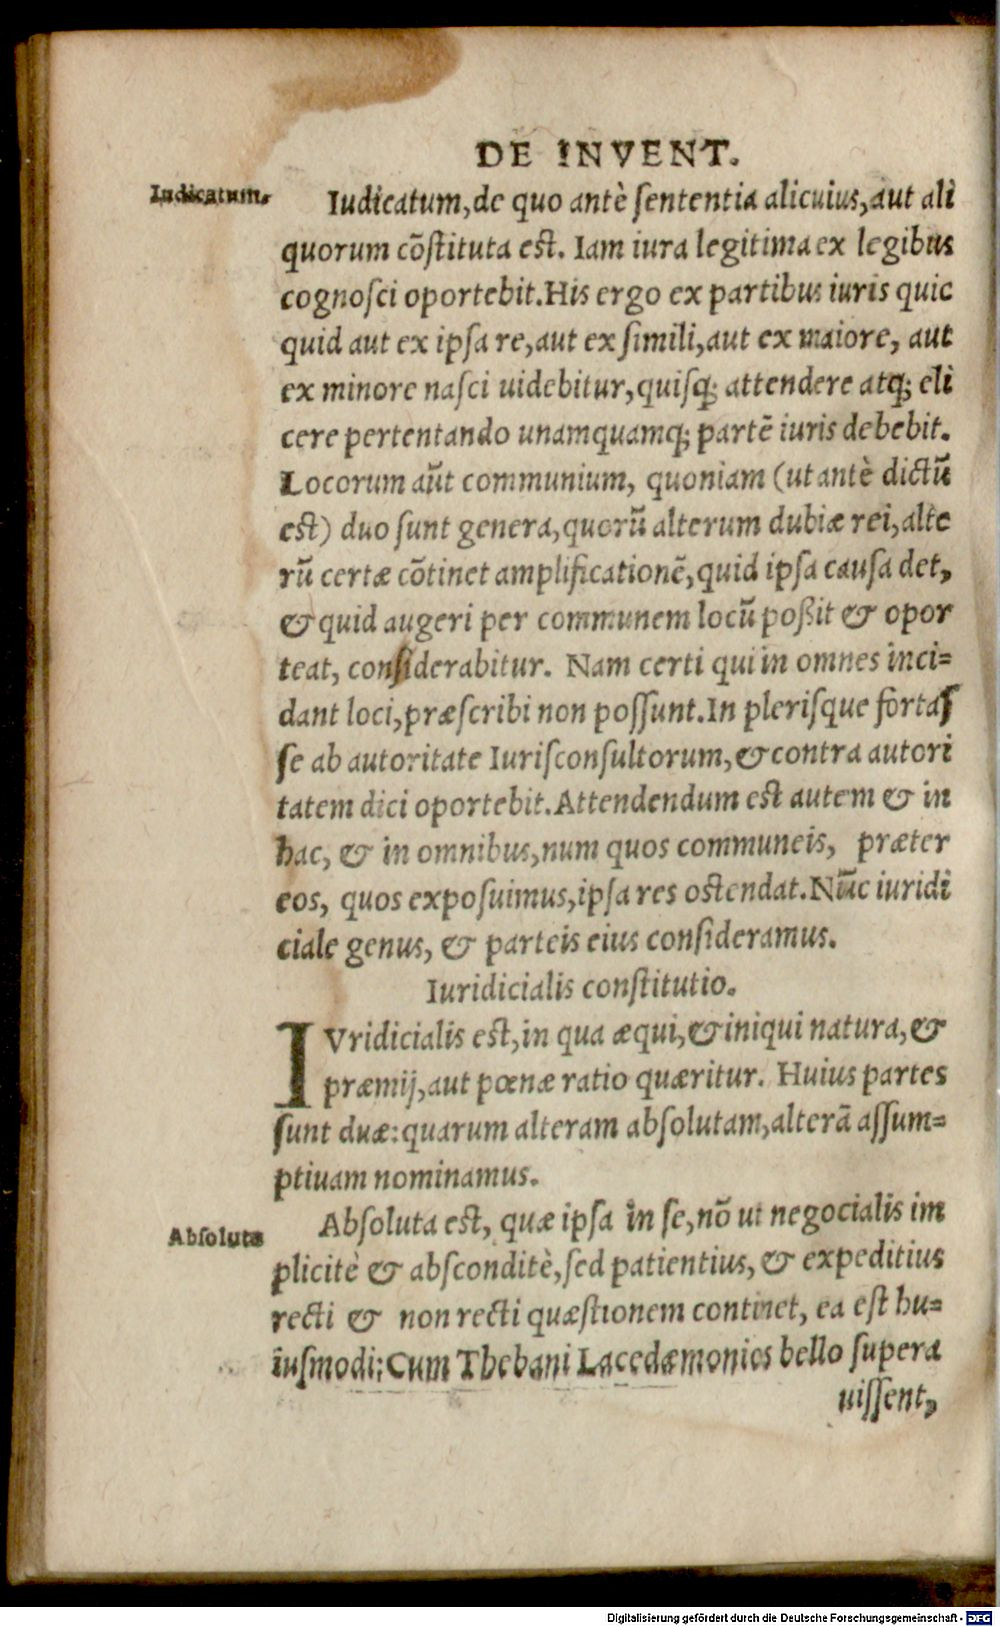 DE INVENT.
Iudicatum.
Iudicatum, de quo antè sententia alicuius, aut ali
quorum cõstituta est. Iam iura legitima ex legibus
cognosci oportebit. His ergo ex partibus iuris quic
quid aut ex ipsa re, aut ex simili, aut ex maiore, aut
ex minore nasci uidebitur, quisq; attendere atq; eli
cere pertentando unamquamq; partẽ iuris debebit.
Locorum aũt communium, quoniam (ut antè dictũ
est) duo sunt genera, quorũ alterum dubiæ rei, alte
rũ certæ cõtinet amplificationẽ, quid ipsa causa det,
& quid augeri per communem locũ poßit & opor
teat, considerabitur. Nam certi qui in omnes inci=
dant loci, præscribi non possunt. In plerisque fortas
se ab autoritate Iurisconsultorum, & contra autori
tatem dici oportebit. Attendendum est autem & in
hac, & in omnibus, num quos communeis, præter
eos, quos exposuimus, ipsa res ostendat. Nũc iuridi
ciale genus, & parteis eius consideramus.
Iuridicialis constitutio.
IVridicialis est, in qua æqui, & iniqui natura, &
præmij, aut pœnæ ratio quæritur. Huius partes
sunt duæ: quarum alteram absolutam, alterã assum=
ptiuam nominamus.
Absoluta
Absoluta est, quæ ipsa in se, nõ ut negocialis im
plicitè & absconditè, sed patientius, & expeditius
recti & non recti quæstionem continet, ea est hu=
iusmodi: Cum Thebani Lacedæmonios bello supera
uissent,
Digitalisierung gefördert durch die Deutsche Forschungsgemeinschaft - DFG